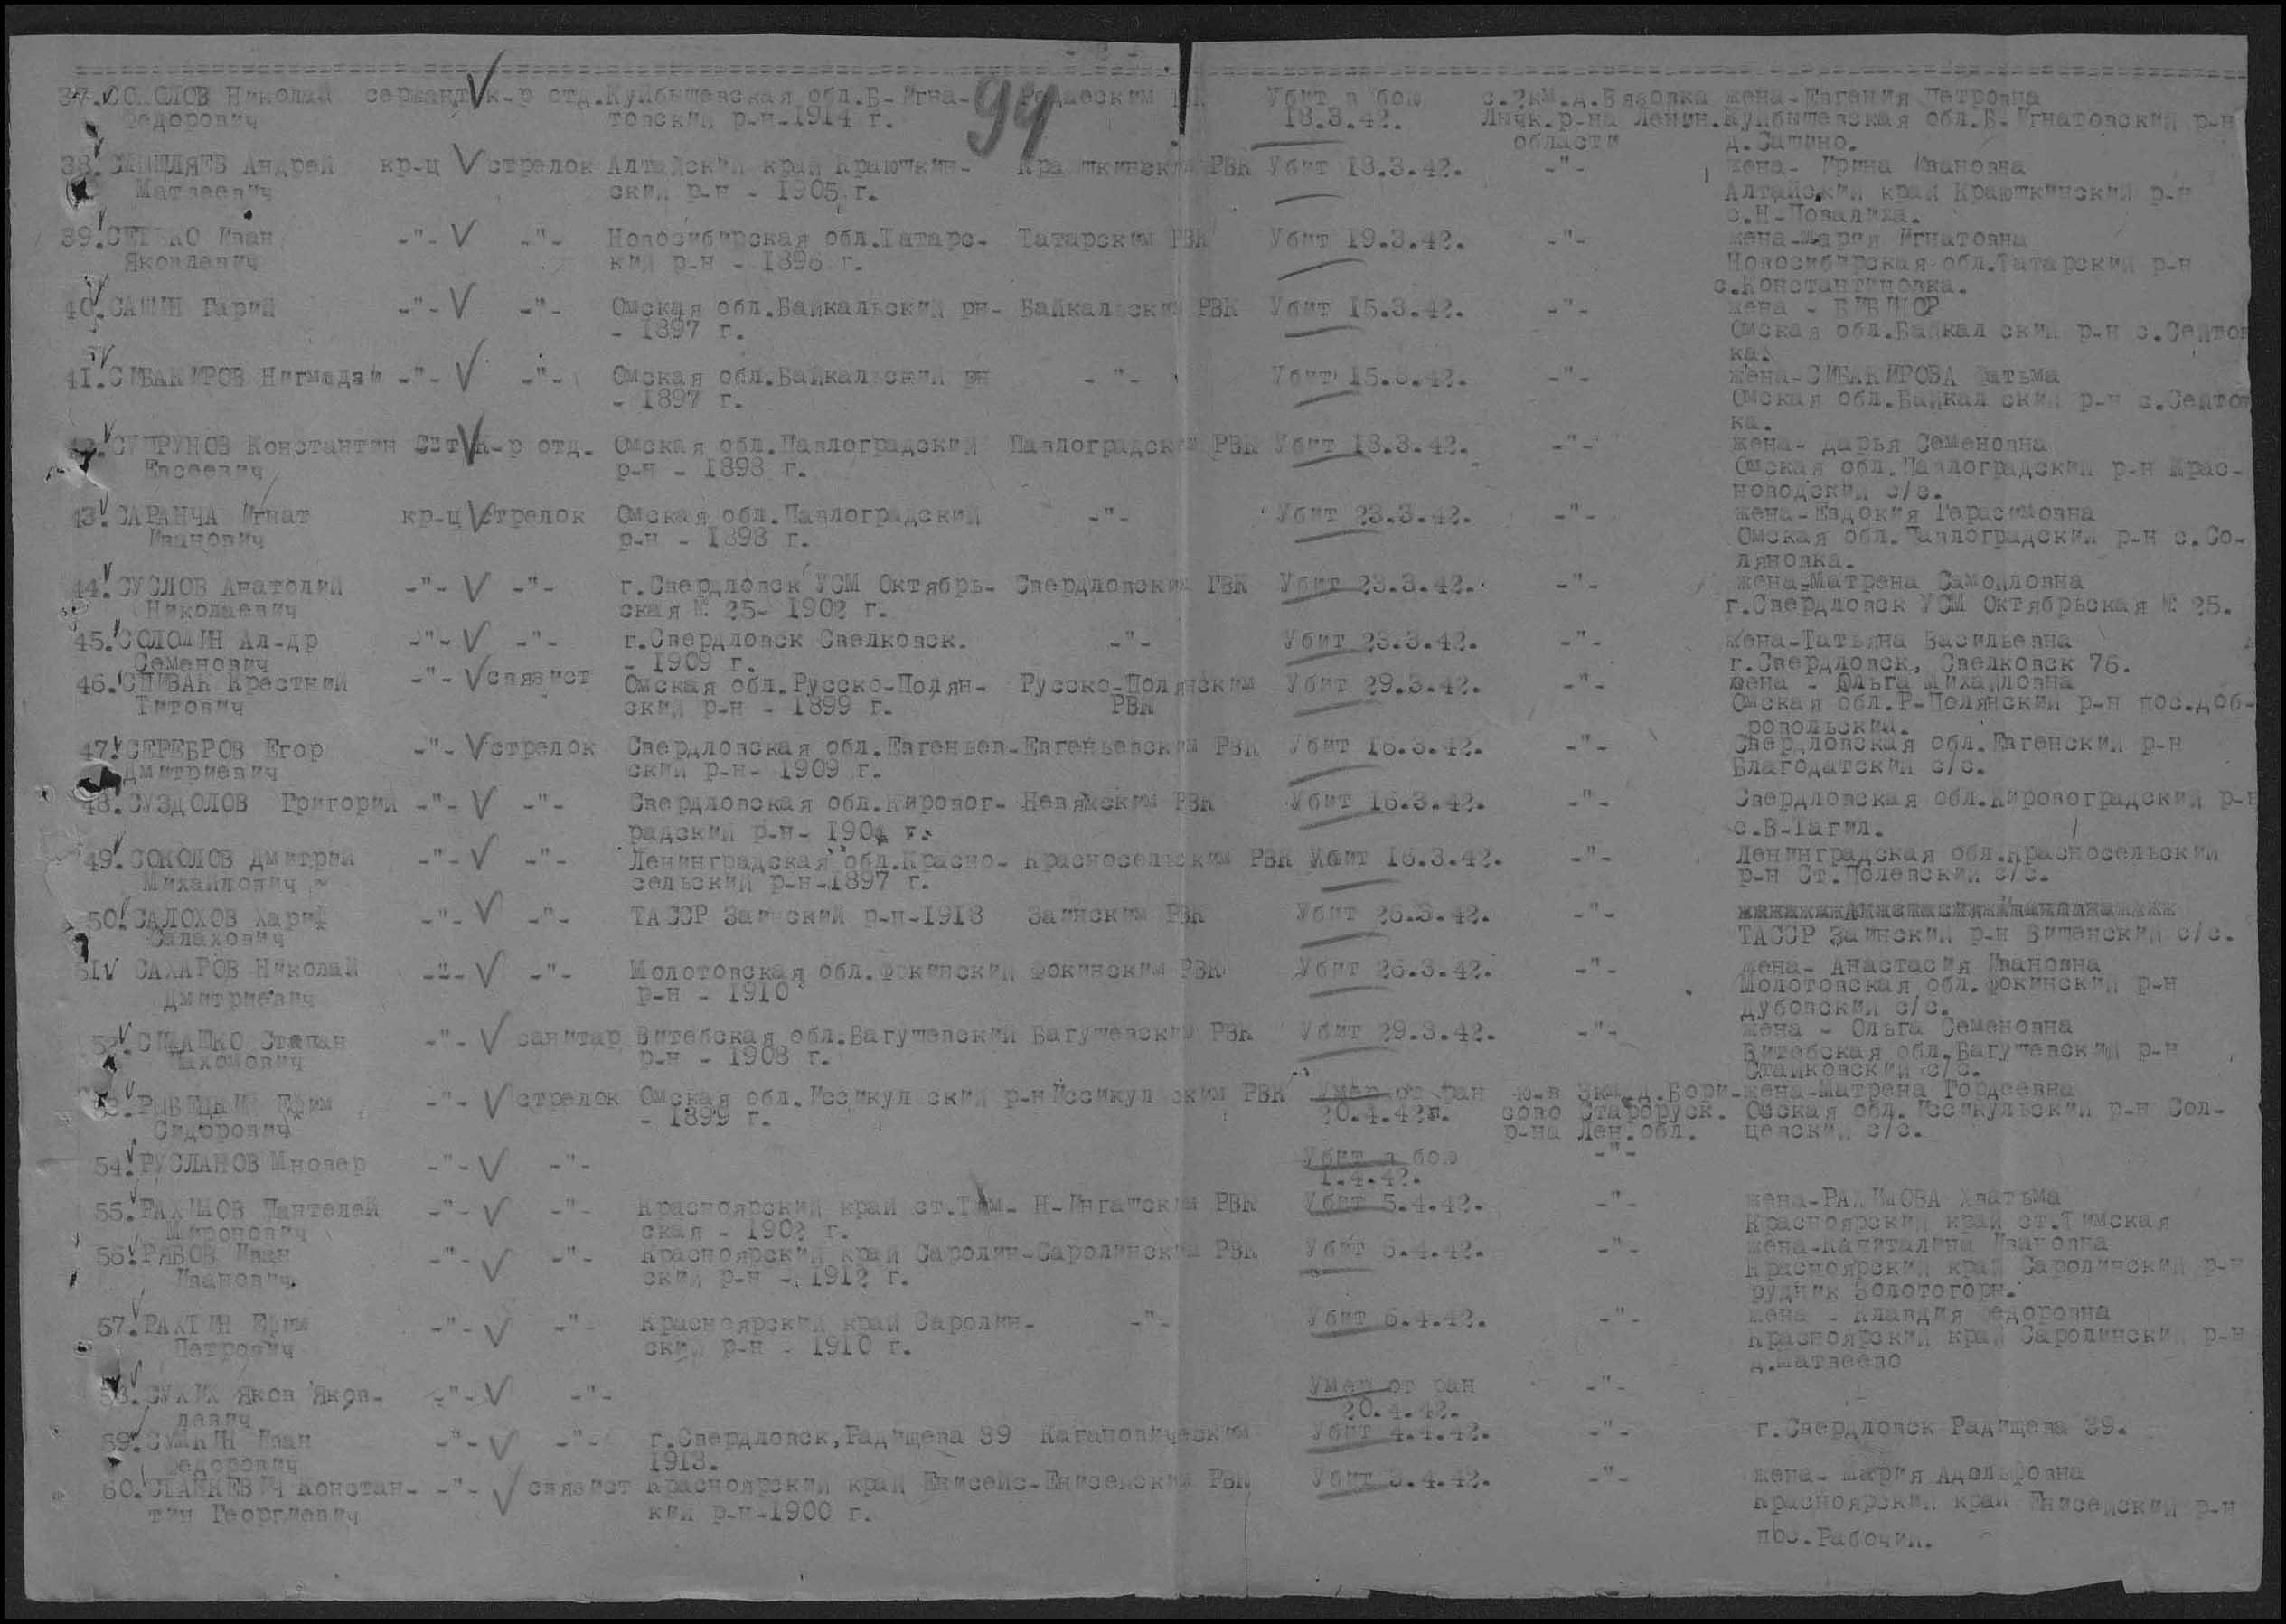 94
37. СОКОЛОВ Николай сержант к-р отд. Куйбышевская обл.Б-Игна- РВК Убит в бою с.2км.д.Вязовка жена-Евгения Петровна
Федорович товский р-н-1914 г. 18.3.42. Лычк.р-на Ленин. Куйбышевская обл.Б-Игнатовский р-н
области д.Сашино.
38. СМЫШЛЯЕВ Андрей кр-ц стрелок Алтайский край Краюшкин- Краюшкинским РВК Убит 18.3.42. -"- жена- Ирина Ивановна
Матвеевич ский р-н - 1905 г. Алтайский край Краюшкинский р-н
с.Н-Повалиха.
39. Иван -"- -"- Новосибирская обл.Татарс- Татарским РВК Убит 19.3.42. -"- жена-Мария Игнатовна
Яковлевич кий р-н - 1896 г. Новосибирская обл.Татарский р-н
с.Константиновка.
40. САШИН Гарий -"- -"- Омская обл.Байкальский рн- Байкальским РВК Убит 15.3.42. -"- жена -
- 1897 г. Омская обл.Байкал ский р-н с.Сеитов
ка.
41. СИБАКИРОВ Нигмадзи -"- -"- Омская обл.Байкальский рн -"- Убит 15.3.42. -"- жена-СИБАКИРОВА Фатьма
- 1897 г. Омская обл.Байкал ский р-н с.Сеитов
ка.
42. СУПРУНОВ Константин к-р отд. Омская обл.Павлоградский Павлоградским РВК Убит 18.3.42. -"- жена- Дарья Семеновна
Евсеевич р-н - 1898 г. Омская обл.Павлоградский р-н Крас-
новодский с/с.
43. САРАНЧА Игнат кр-ц стрелок Омская обл.Павлоградский -"- Убит 23.3.42. -"- жена-Евдокия Герасимовна
Иванович р-н - 1898 г. Омская обл.Павлоградский р-н с.Со-
ляновка.
44. СУСЛОВ Анатолий -"- -"- г.Свердловск УСМ Октябрь- Свердловским ГВК Убит 23.3.42. -"- жена-Матрена Самойловна
Николаевич ская № 25- 1902 г. г.Свердловск УСМ Октябрьская № 25.
45. СОЛОМИН Ал-др -"- -"- г.Свердловск Свелковск. -"- Убит 23.3.42. -"- жена-Татьяна Васильевна
Семенович - 1909 г. г.Свердловск, Свелковск 76.
46. СПИВАК Крестний -"- связист Омская обл.Русско-Полян- Русско-Полянским Убит 29.3.42. -"- жена - Ольга Михайловна
Титович ский р-н - 1899 г. РВК Омская обл.Р-Полянский р-н пос.Доб-
ровольский.
47. СЕРЕБРОВ Егор -"- стрелок Свердловская обл.Евгеньев- Евгеньевским РВК Убит 16.3.42. -"- Свердловская обл.Евгенский р-н
Дмитриевич ский р-н- 1909 г. Благодатский с/с.
48. СУЗДОЛОВ Григорий -"- -"- Свердловская обл.Кировог- Невямским РВК Убит 16.3.42. -"- Свердловская обл.Кировоградский р-н
радский р-н- 1904 г. с.В-Тагил.
49. СОКОЛОВ Дмитрий -"- -"- Ленинградская обл.Красно- Красносельским РВК Убит 16.3.42. -"- Ленинградская обл.Красносельский
Михайлович сельский р-н-1897 г. р-н Ст.Полевский с/с.
50. САЛОХОВ Хариф -"- -"- ТАССР Заинский р-н-1918 Заинским РВК Убит 26.3.42. -"-
Салахович ТАССР Заинский р-н Вишенский с/с.
51. САХАРОВ Николай -"- -"- Молотовская обл.Фокинский Фокинским РВК Убит 26.3.42. -"- жена- Анастасия Ивановна
Дмитриевич р-н - 1910 Молотовская обл.Фокинский р-н
Дубовский с/с.
52. СИМАШКО Степан -"- санитар Витебская обл.Багушевский Багушевским РВК Убит 29.3.42. -"- жена - Ольга Семеновна
Пахомович р-н - 1908 г. Витебская обл.Багушевский р-н
Стайковский с/с.
53. РЫБЕЦКИЙ Ефим -"- стрелок Омская обл.Иссикул ский р-н Иссикул ским РВК Умер от ран ю-в 3км.д.Бори- жена-Матрена Гордеевна
Сидорович - 1899 г. 20.4.42г. сово Старорусск. Омская обл.Иссикульский р-н Сол-
р-на Лен.обл. цевский с/с.
54. РУСЛАНОВ Мновер -"- -"- Убит в бою -"-
1.4.42.
55. РАХИМОВ Пантелей -"- -"- Красноярский край ст.Тим- Н-Ингашским РВК Убит 5.4.42. -"- жена-РАХИМОВА Хватьма
Миронович ская - 1902 г. Красноярский край ст.Тимская
56. РЯБОВ Иван -"- -"- Красноярский край Саролин- Саролинским РВК Убит 6.4.42. -"- жена-Капиталина Ивановна
Иванович ский р-н - 1912 г. Красноярский край Саролинский р-н
рудник Золотогорн.
57. РАКТИН Ефим -"- -"- Красноярский край Саролин- -"- Убит 6.4.42. -"- жена - Клавдия Федоровна
Петрович ский р-н - 1910 г. Красноярский край Саролинский р-н
д.Матвеево
58. СУХИХ Яков Яков- -"- -"- Умер от ран -"-
левич 20.4.42.
59. СУШКИН Иван -"- -"- г.Свердловск,Радищева 39 Кагановическим Убит 4.4.42. -"- г.Свердловск Радищева 39.
Федорович 1913.
60. СТАНКЕВИЧ Констан- -"- связист Красноярский край Енисейс- Енисейским РВК Убит 3.4.42. -"- жена- Мария Адольфовна
тин Георгиевич кий р-н-1900 г. Красноярский край Енисейский р-н
пос.Рабочий.